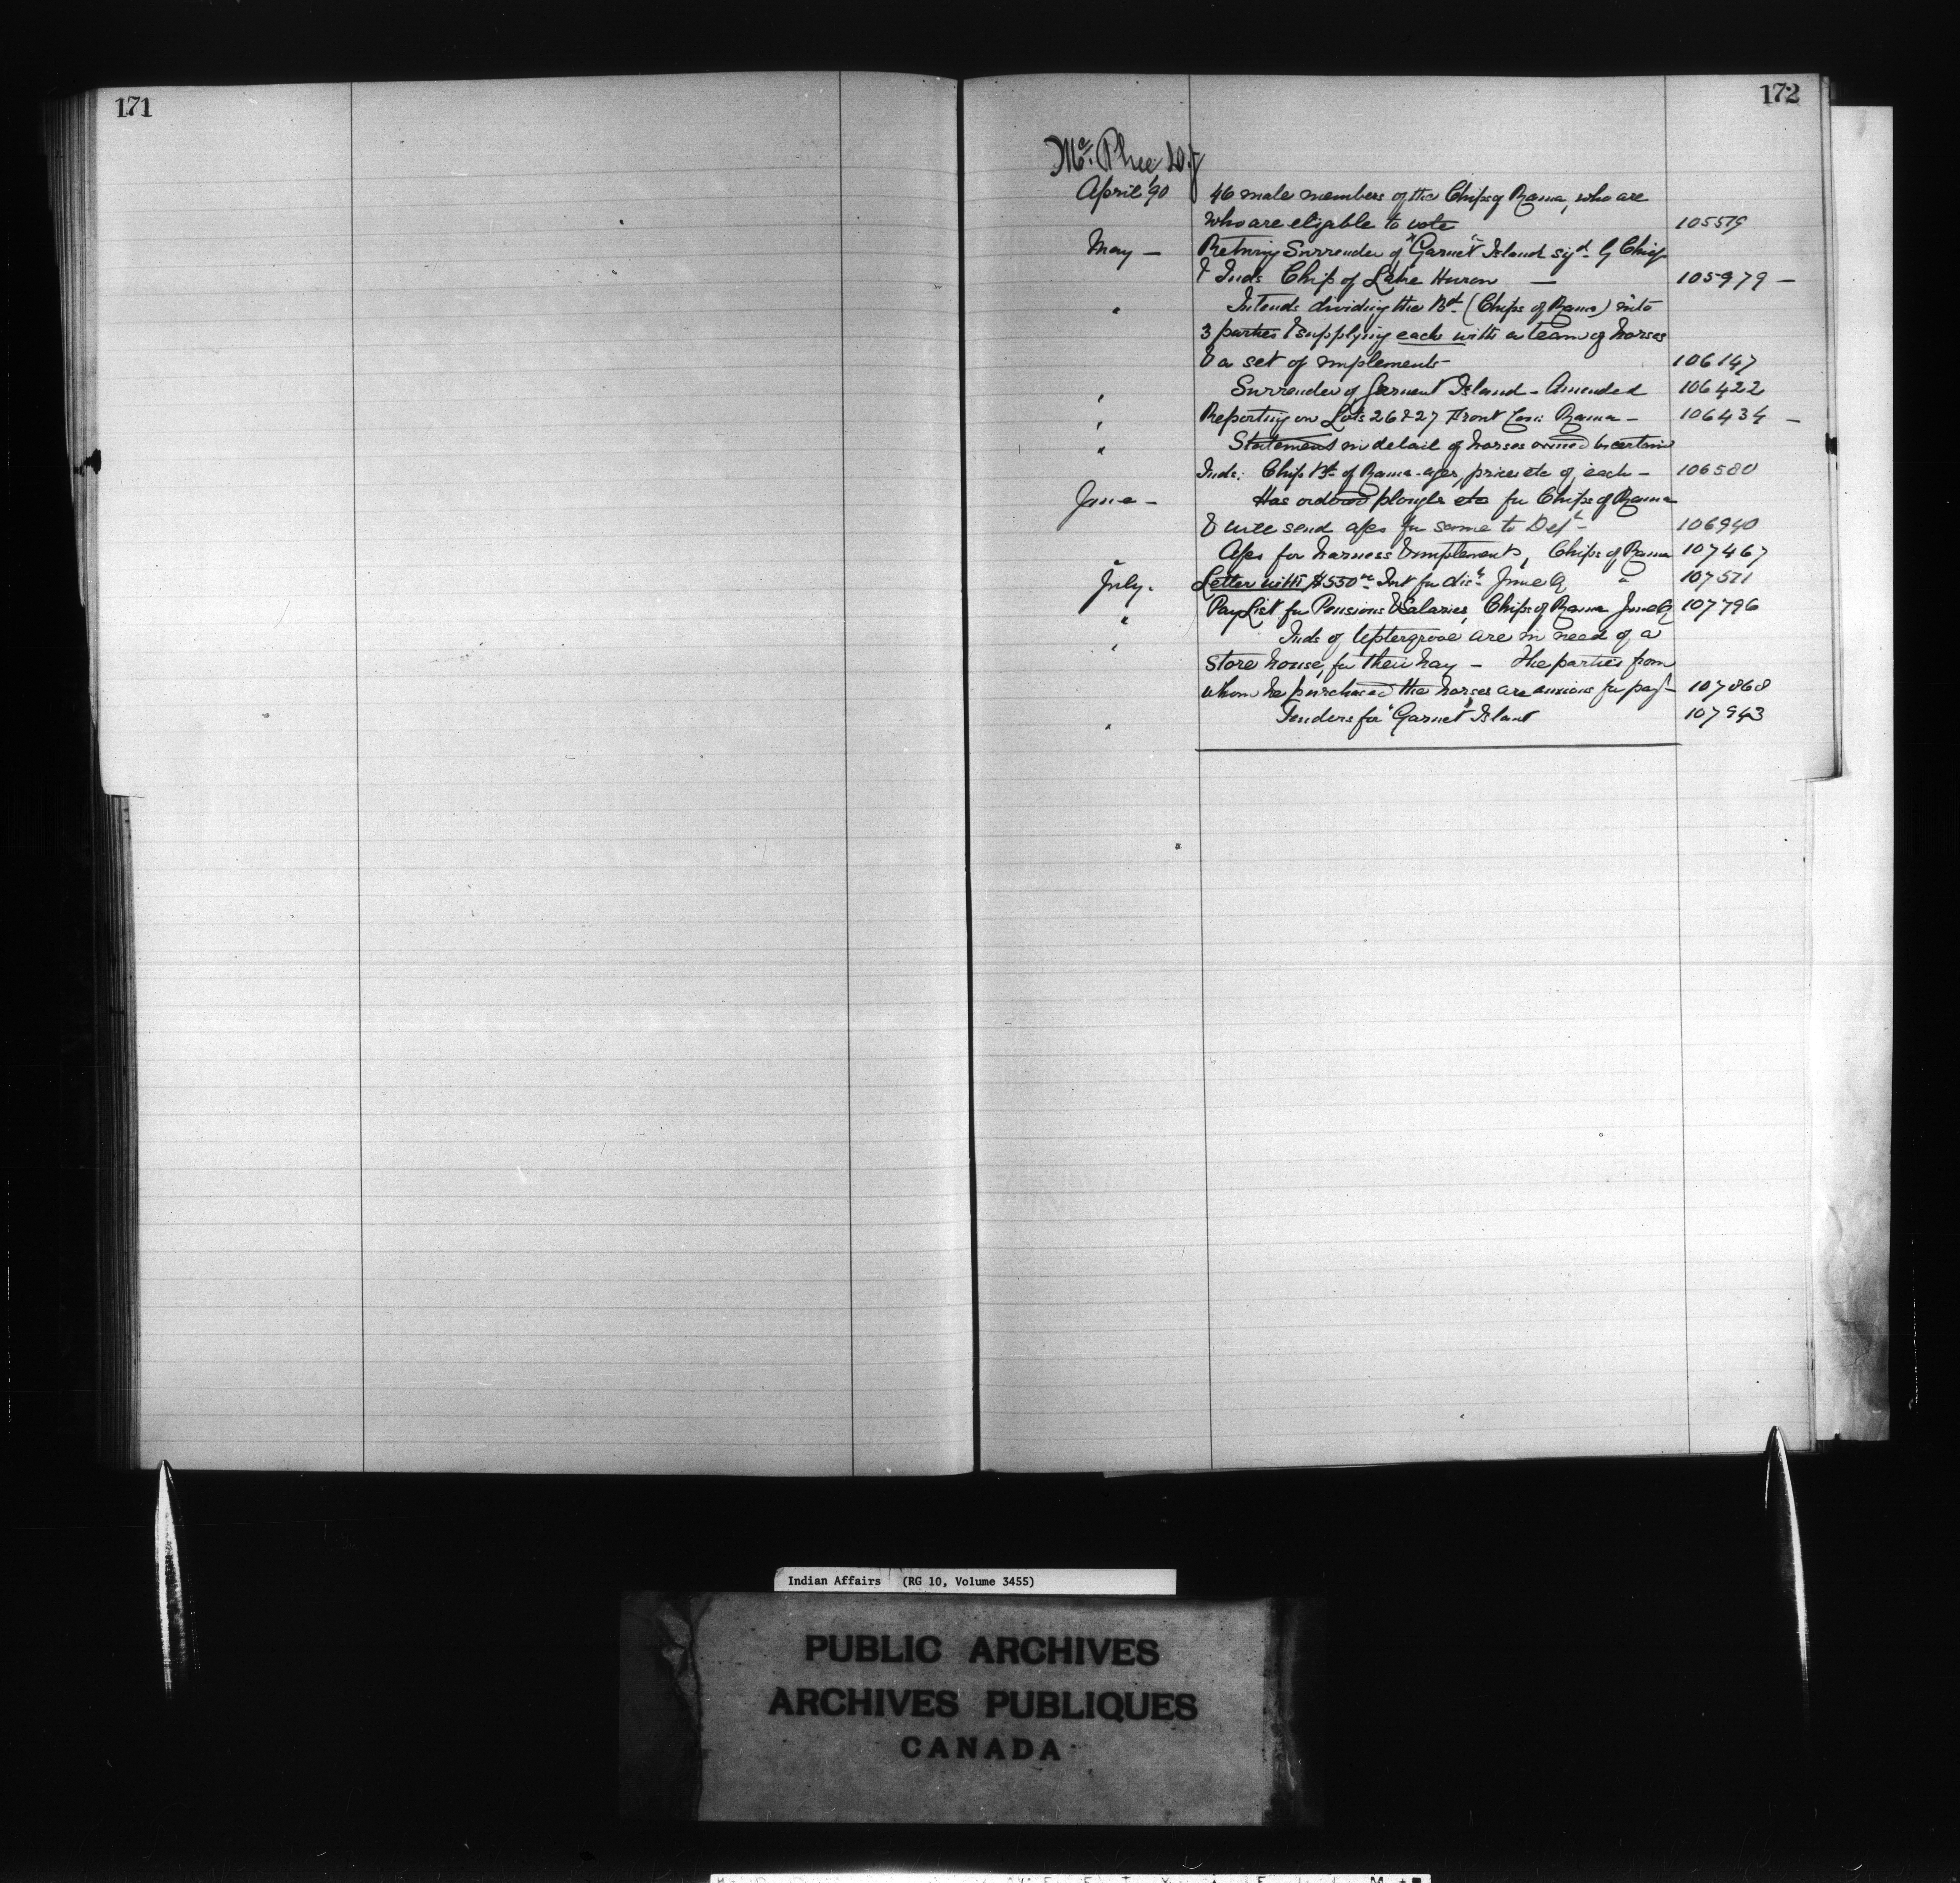 171
172
Mc. Phee D.J
April '90 46 male members of the Chips of Rama, who are
who are eligable to vote 105579
May — Returng Surrender of "Garnet" Island sigd. by Chief
& Inds Chip of Lake Huron — 105979 —
" Intends dividing the Bd. (Chips of Rama) into
3 parties & supplying each with a team of horses
& a set of implements 106147
" Surrender of Garnet Island - Amended 106422
" Reporting on Lots 26 & 27 Front Con: Rama — 106434 —
" Statement in detail of horses owned by certain
Inds: Chip Bd. of Rama - ages, price etc of each — 106580
June — Has ordered ploughs etc for Chips of Rama
& will send a/cs for same to Dept. 106940
" A/cs for harness & implements, Chips of Rama 107467
July. Letter with $550 Int for dist. June Q " 107571
" Pay List for Pensions & Salaries, Chips of Rama June Q 107796
" Inds of Uptergrove are in need of a
store house, for their hay — The parties from
whom he purchased the horses are anxious for payt. 107868
" Tenders for "Garnet" Island 107943
Indian Affairs (RG 10, Volume 3455)
PUBLIC ARCHIVES
ARCHIVES PUBLIQUES
CANADA